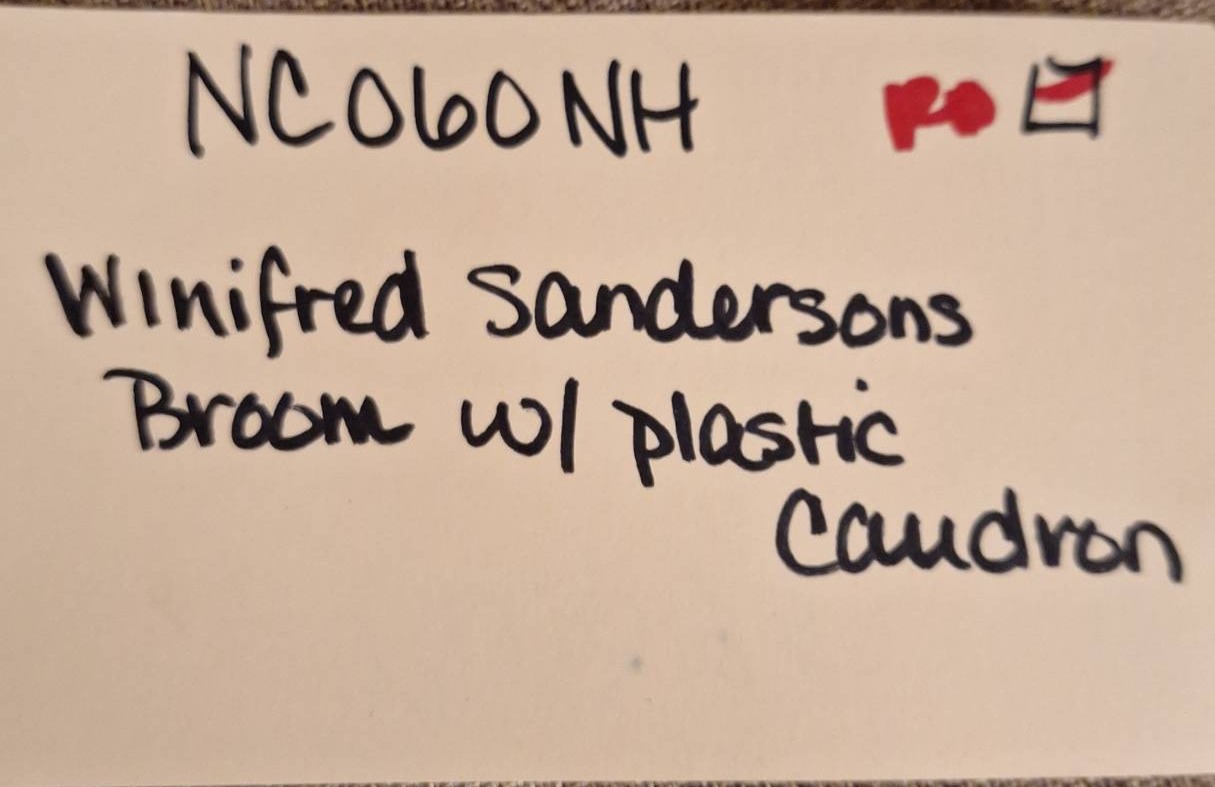 NC060NH RO
Winifred Sandersons
Broom w/ plastic
Caudron